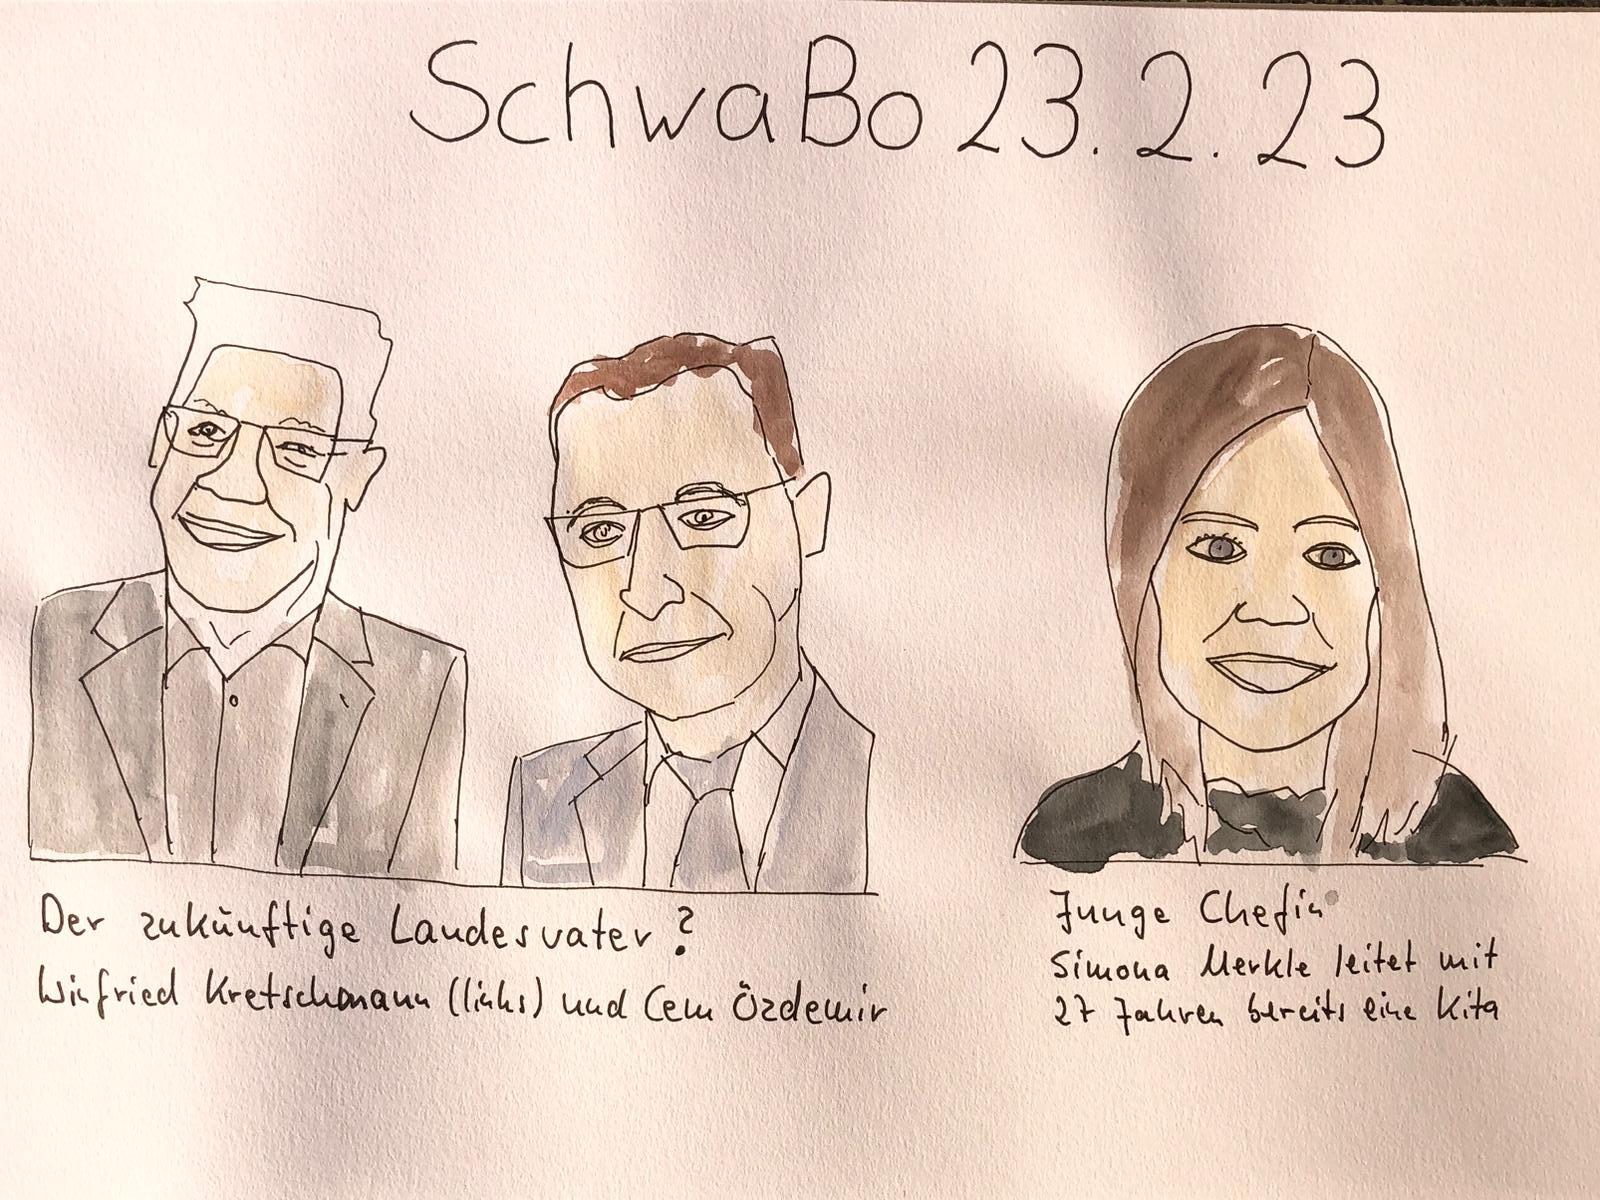 SchwaBo 23.2.23
Der zukünftige Landesvater?
Winfried Kretschmann (links) und Cem Özdemir
Junge Chefin
Simona Merkle leitet mit
27 Jahren bereits eine Kita